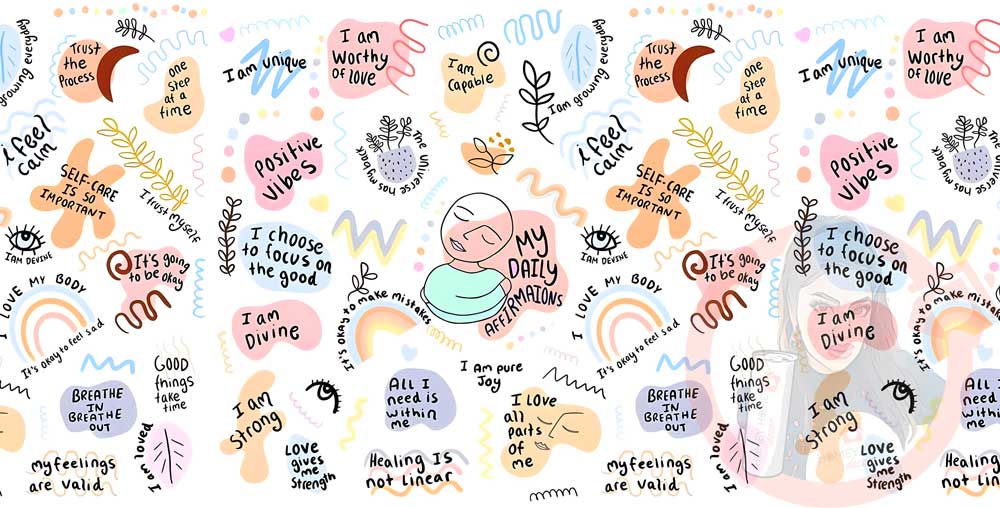 growing everyday
Trust
the
Process
one
step
at a
time
i feel
calm
SELF-CARE
IS SO
IMPORTANT
I trust myself
I AM DEVINE
It's going
to be okay
I LOVE MY BODY
It's okay to feel sad
BREATHE
IN
BREATHE
OUT
GOOD
things
take
time
my feelings
are valid
I am loved
I am unique
I am
Worthy
of love
Positive
vibes
The universe has my back
I choose
to focus on
the good
I am
Divine
It's okay to make mistakes
I am
Strong
LOVE
gives
me
Strength
All I
need is
within
me
Healing IS
not linear
I am
Capable
MY
DAILY
AFFIRMAIONS
I am pure
Joy
I love
all
parts
of
me
I am growing everyday
Trust
the
Process
one
step
at a
time
i feel
calm
SELF-CARE
IS SO
IMPORTANT
I trust myself
I AM DEVINE
It's going
to be okay
I LOVE MY BODY
It's okay to feel sad
BREATHE
IN
BREATHE
OUT
GOOD
things
take
time
my feelings
are valid
I am loved
I am unique
I am
Worthy
of love
Positive
vibes
The universe has my back
I choose
to focus on
the good
I am
Divine
It's okay to make mistakes
I am
Strong
LOVE
gives
me
Strength
All I
need
within
me
Healing
not linear